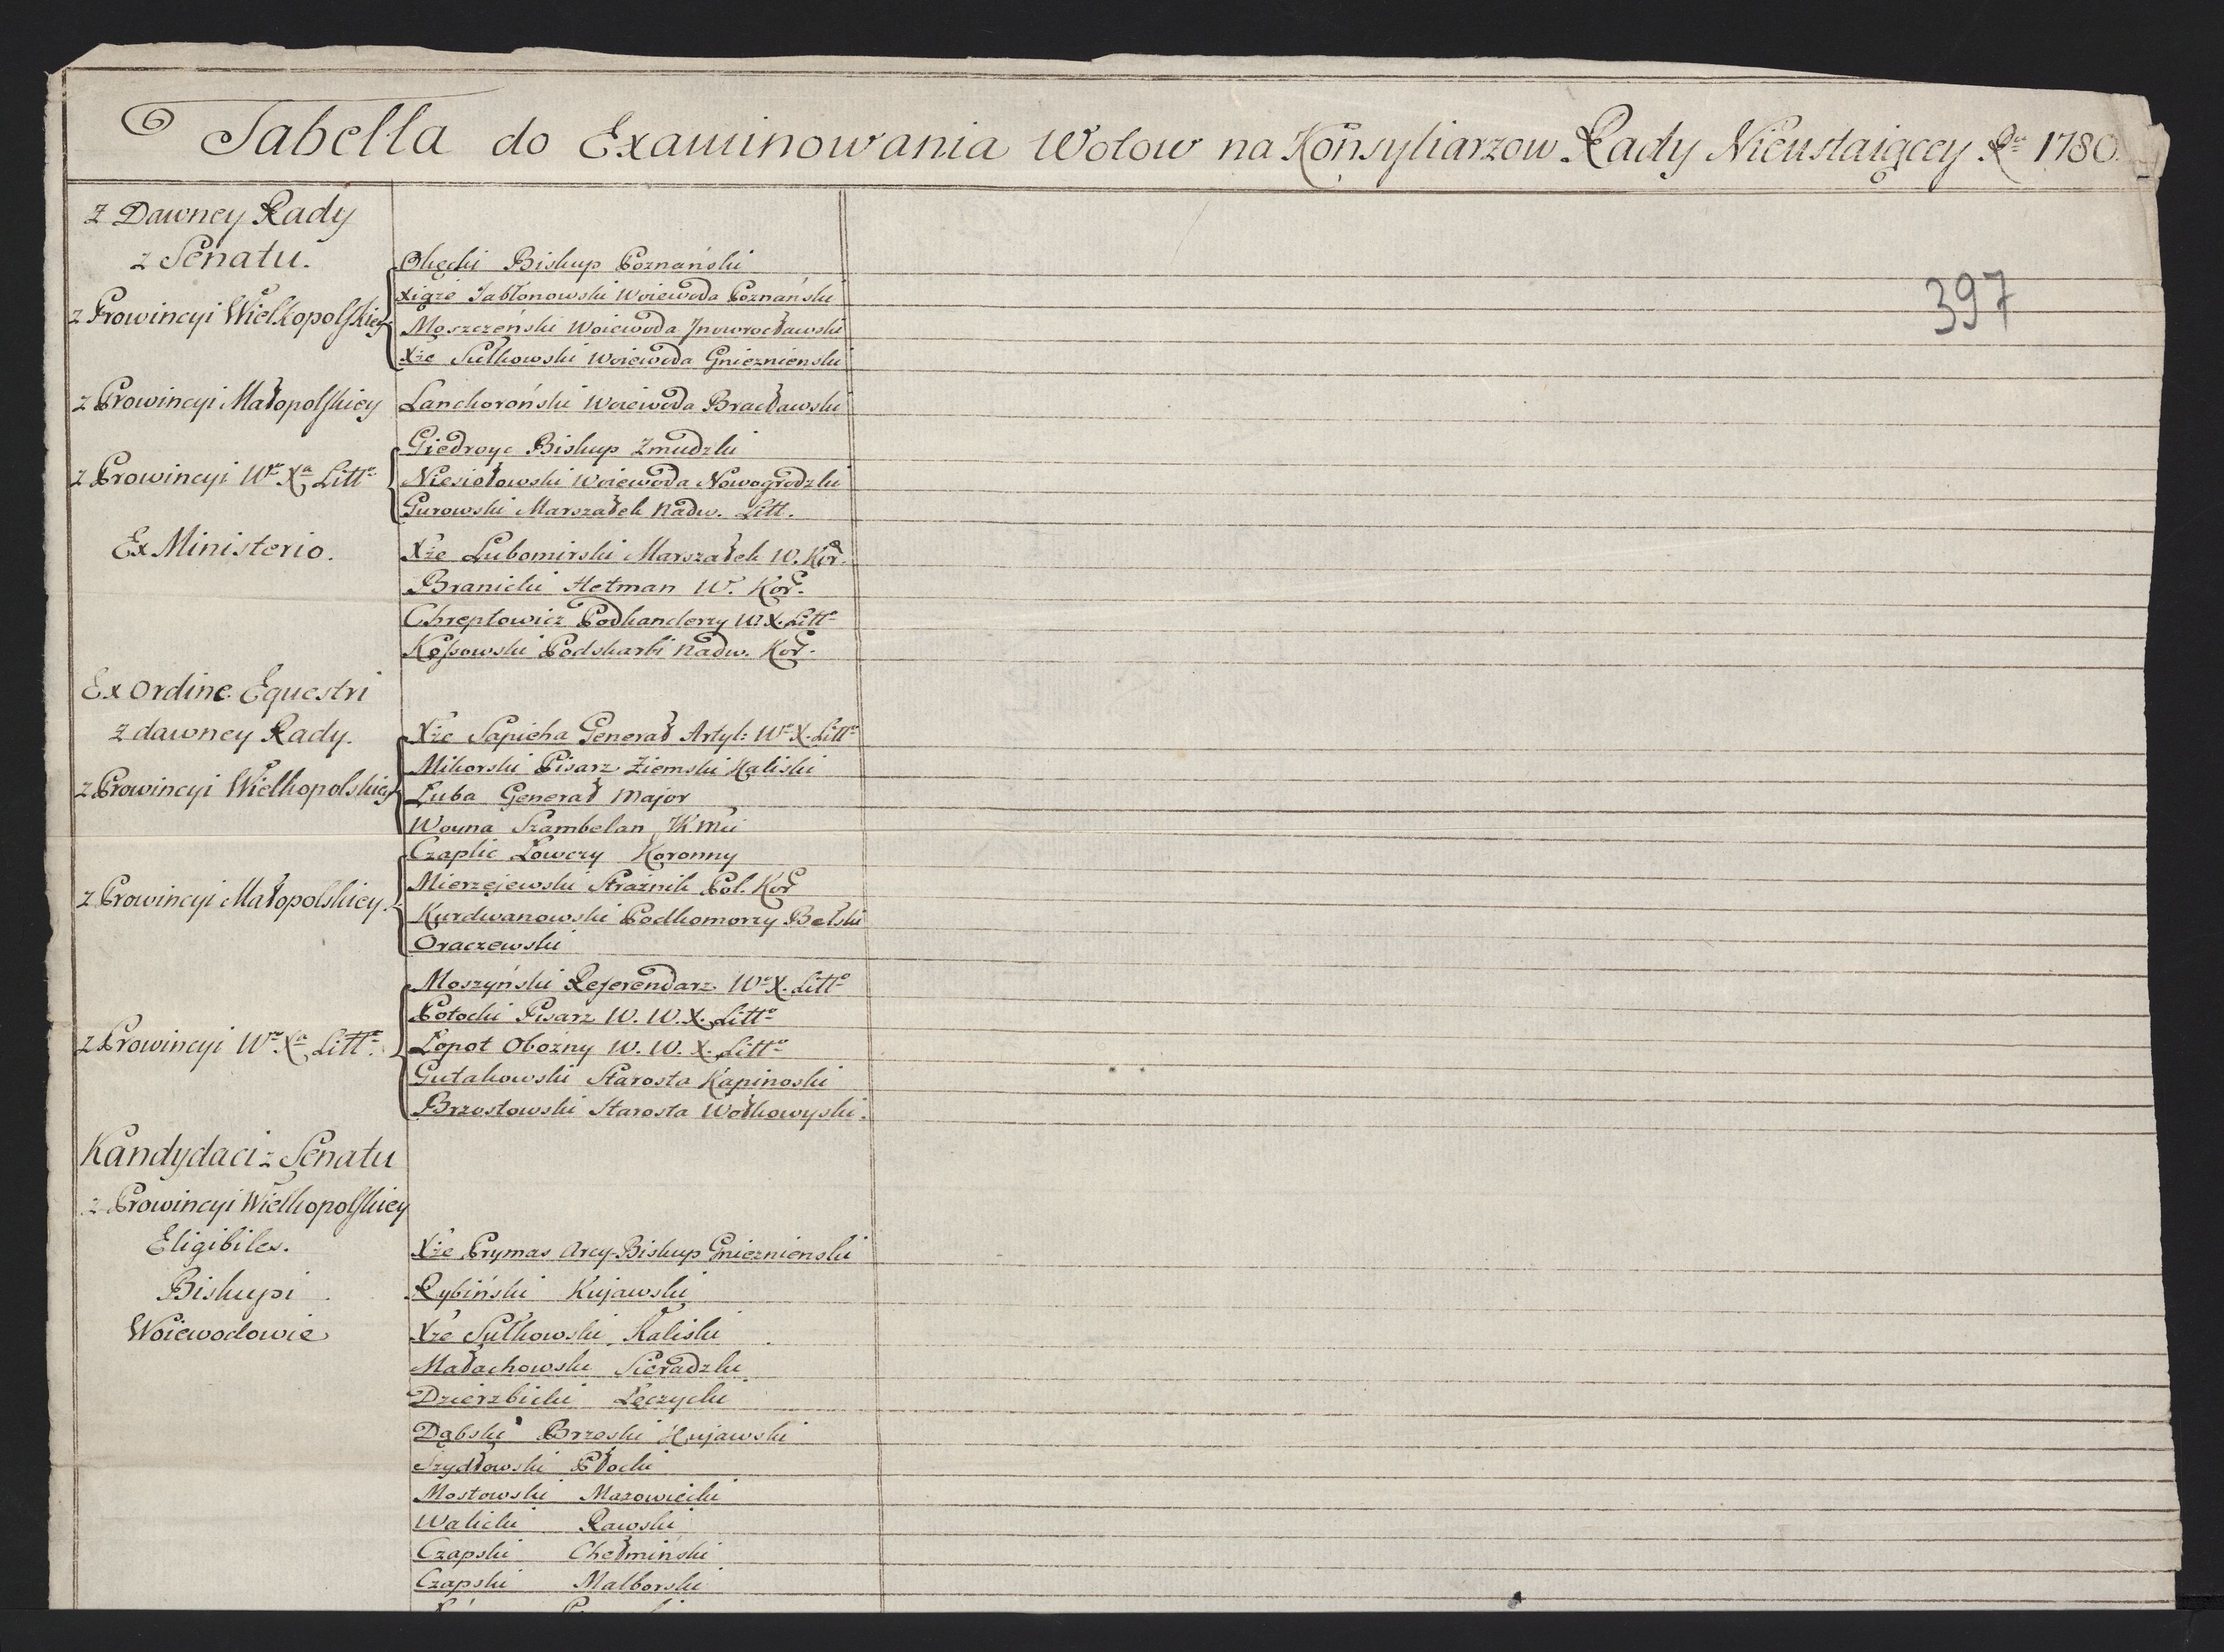 Tabella do Examinowania Wotow na Konsyliarzow Rady Nieustaiącey Ru 1780.
397
z Dawney Rady
z Senatu.
Okęcki Biskup Poznański
z Prowincyi Wielkopolskiey
Xiąże Jabłonowski Woiewoda Poznański
Moszczeński Woiewoda Jnowrocławski
Xże Sułkowski Woiewoda Gnieznienski
z Prowincyi Małopolskiey
Lanckoroński Woiewoda Bracławski
Giedroyc Biskup Zmudzki
z Prowincyi Wo Xa Litto
Niesiołowski Woiewoda Nowogrodzki
Gurowski Marszałek Nadw. Litt.
Ex Ministerio.
Xże Lubomirski Marszałek W. Kor.
Branicki Hetman W. Kor.
Chreptowicz Podkanclerzy W. X. Litto
Kossowski Podskarbi Nadw. Kor.
Ex Ordine Equestri
z dawney Rady.
Xże Sapieha Generał Artyl: Wo X. Litto
z Prowincyi Wielkopolskiey
Mikorski Pisarz Ziemski Kaliski
Luba Generał Major
Woyna Szambelan JKMci
z Prowincyi Małopolskiey.
Czaplic Łowczy Koronny
Mierzejewski Strażnik Pol. Kor
Kurdwanowski Podkomorzy Bełski
Oraczewski
z Prowincyi Wo Xa Litto.
Moszyński Referendarz Wo X. Litto
Potocki Pisarz W. W. X. Litto
Łopot Obożny W. W. X. Litto
Gutakowski Starosta Kapinoski
Brzostowski Starosta Wołkowyski.
Kandydaci z Senatu
z Prowincyi Wielkopolskiey
Eligibiles.
Xże Prymas Arcy-Biskup Gnieznienski
Biskupi
Rybiński Kujawski
Woiewodowie
Xże Sułkowski Kaliski
Małachowski Sieradzki
Dzierzbicki Łęczycki
Dąbski Brzeski Kujawski
Szydłowski Płocki
Mostowski Mazowiecki
Walicki Rawski
Czapski Chełmiński
Czapski Malborski